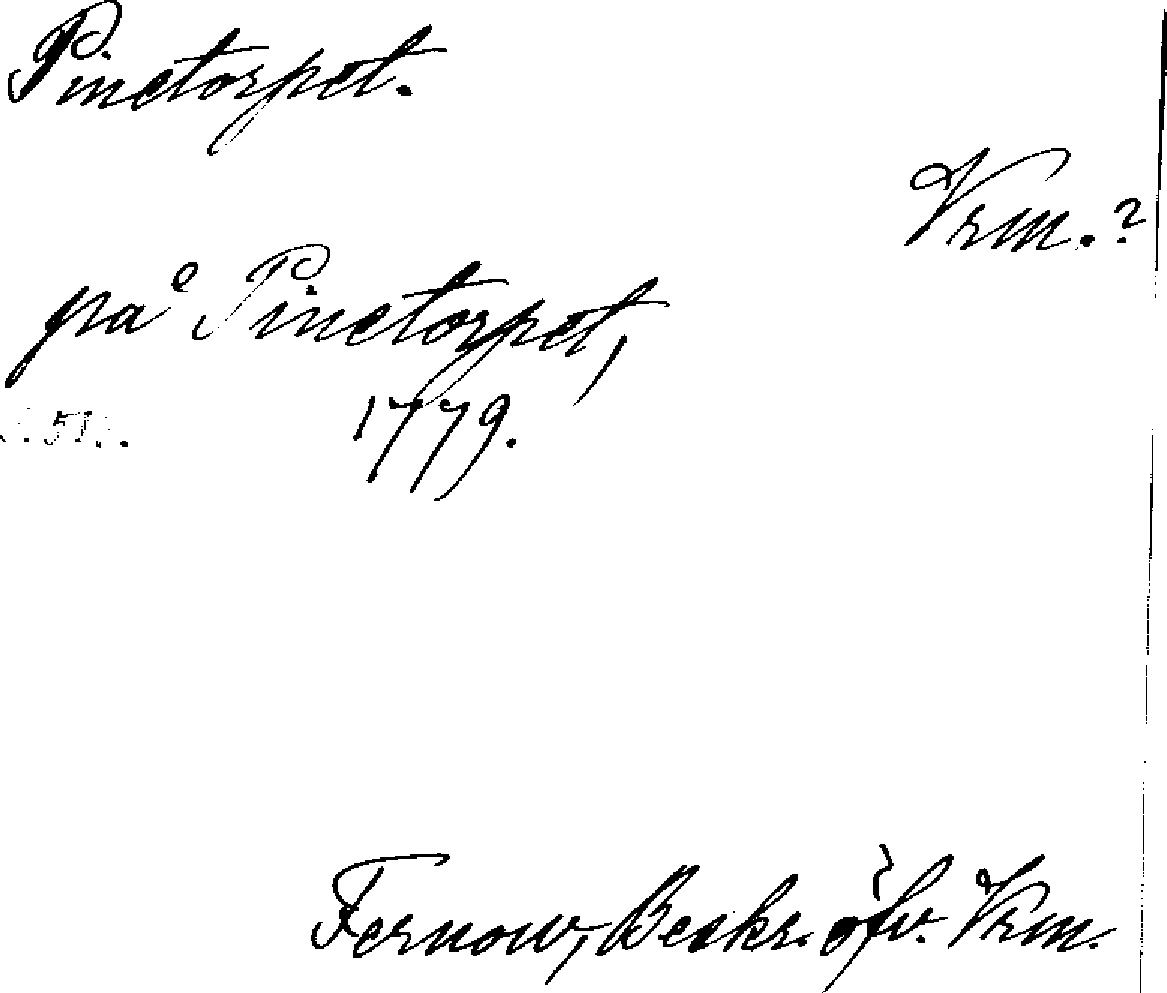 Pinetorpet.
Vrm.?
på Pinetorpet,
1779.
Fernow, Beskr. öfv. Vrm.